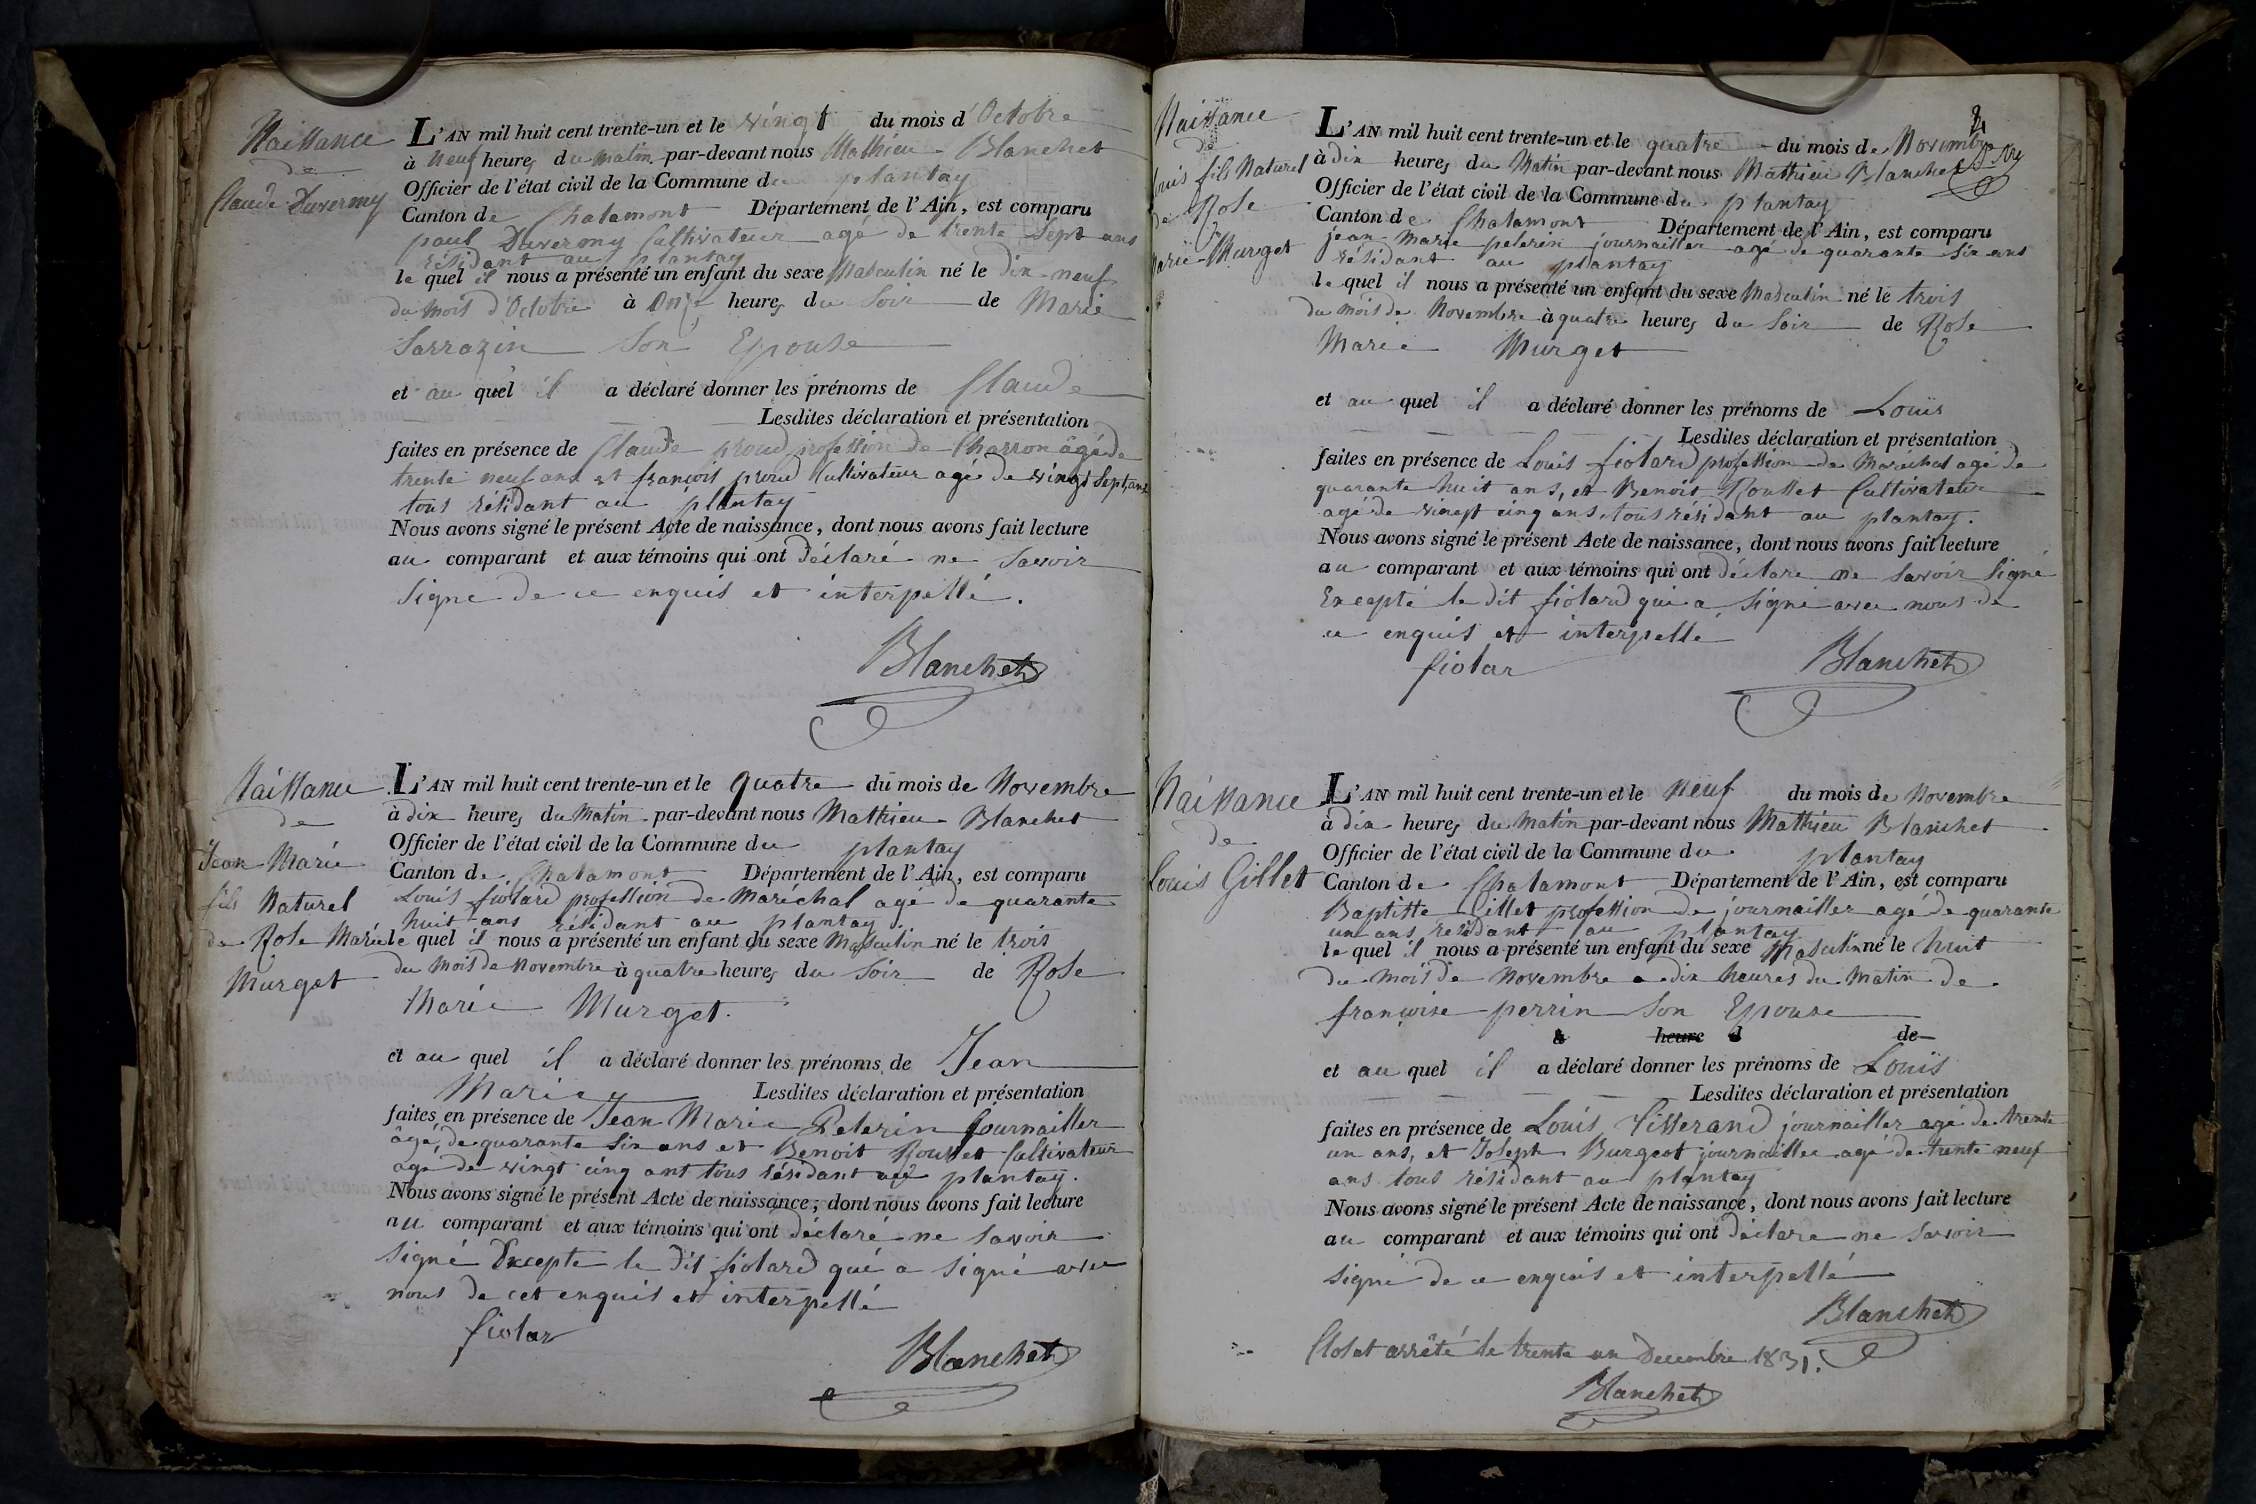 Naissance
de
Claude Duvermy
L'AN mil huit cent trente-un et le vingt du mois d'Octobre
à neuf heures du matin par-devant nous Mathieu Blanchet
Officier de l'état civil de la Commune du plantay
Canton de Chalamont Département de l'Ain, est comparu
paul Duvermy Cultivateur agé de trente sept ans
résidant au plantay
le quel il nous a présenté un enfant du sexe Masculin né le dix-neuf
du mois d'Octobre à Onze heures du Soir de Marie
Sarrazin Son Epouse
et au quel il a déclaré donner les prénoms de Claude
Lesdites déclaration et présentation
faites en présence de Claude proud profession de Charron âgé de
trente neuf ans et françois proud Cultivateur agé de vingt Sept ans
tous résidant au plantay
Nous avons signé le présent Acte de naissance, dont nous avons fait lecture
au comparant et aux témoins qui ont déclaré ne Savoir
Signe de ce enquis et interpellé.
Blanchet
Naissance
de
Jean Marie
fils Naturel
de Rose Marie
Murget
L'AN mil huit cent trente-un et le quatre du mois de Novembre
à dix heures du Matin par-devant nous Mathieu Blanchet
Officier de l'état civil de la Commune du plantay
Canton de Chalamont Département de l'Ain, est comparu
Louis fiolard profession de Maréchal agé de quarante
huit ans résidant au plantay
le quel il nous a présenté un enfant du sexe Masculin né le trois
du Mois de Novembre à quatre heures du Soir de Rose
Marie Murget.
et au quel il a déclaré donner les prénoms de Jean
Marie Lesdites déclaration et présentation
faites en présence de Jean Marie Pelerin Journailler
âgé de quarante Six ans et Benoit Rousset Cultivateur
agé de vingt cinq ant tous résidant au plantay.
Nous avons signé le présent Acte de naissance, dont nous avons fait lecture
au comparant et aux témoins qui ont déclaré ne Savoir
Signé Excepte le dit fiolard qui a Signé avec
nous de cet enquis et interpellé
fiolar
Blanchet
Naissance
de
Louis fils Naturel
de Rose
Marie Murget
L'AN mil huit cent trente-un et le quatre du mois de Novembre
à dix heures du Matin par-devant nous Mathieu Blanchet
Officier de l'état civil de la Commune du plantay
Canton de Chalamont Département de l'Ain, est comparu
jean Marie pelerin journailler agé de quarante Six ans
résidant au plantay
le quel il nous a présenté un enfant du sexe Masculin né le trois
du Mois de Novembre à quatre heures du Soir de Rose
Marie Murget
et au quel il a déclaré donner les prénoms de Louis
Lesdites déclaration et présentation
faites en présence de Louis fiolard profession de Maréchal agé de
quarante huit ans, et Benoit Rousset Cultivateur
agé de vinept cinq ans, tous résidant au plantay.
Nous avons signé le présent Acte de naissance, dont nous avons fait lecture
au comparant et aux témoins qui ont déclare ne Savoir Signé
Excepté le dit fiolard qui a Signé avec nous de
ce enquis et interpellé
fiolar Blanchet
Naissance
de
Louis Gillet
L'AN mil huit cent trente-un et le neuf du mois de Novembre
à dix heures du Matin par-devant nous Mathieu Blanchet
Officier de l'état civil de la Commune du plantay
Canton de Chalamont Département de l'Ain, est comparu
Baptitte Gillet profession de journailler agé de quarante
un ans résidant au plantay
le quel il nous a présenté un enfant du sexe Masculin né le huit
du mois de Novembre a dix heures du Matin de
françoise perrin Son Epouse
à heure d de
et au quel il a déclaré donner les prénoms de Louis
Lesdites déclaration et présentation
faites en présence de Louis Tisserand journailler agé de trente
un ans, et Joseph Burgeot journailler agé de trente neuf
ans tous résidant au plantay
Nous avons signé le présent Acte de naissance, dont nous avons fait lecture
au comparant et aux témoins qui ont déclare ne Savoir
Signé de ce enquis et interpellé
Blanchet
Clos et arrêté le trente un Decembre 1831.
Blanchet